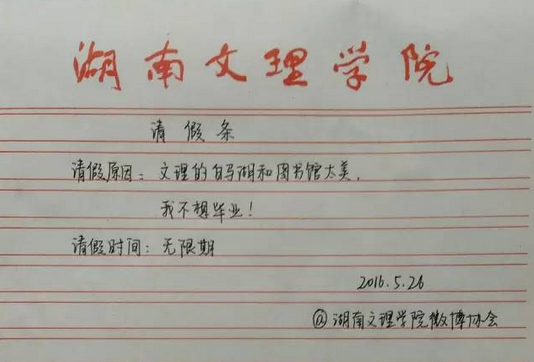 湖南文理学院
请假条
请假原因：文理的白马湖和图书馆太美，
我不想毕业！
请假时间：无限期
2016.5.26
@湖南文理学院微博协会